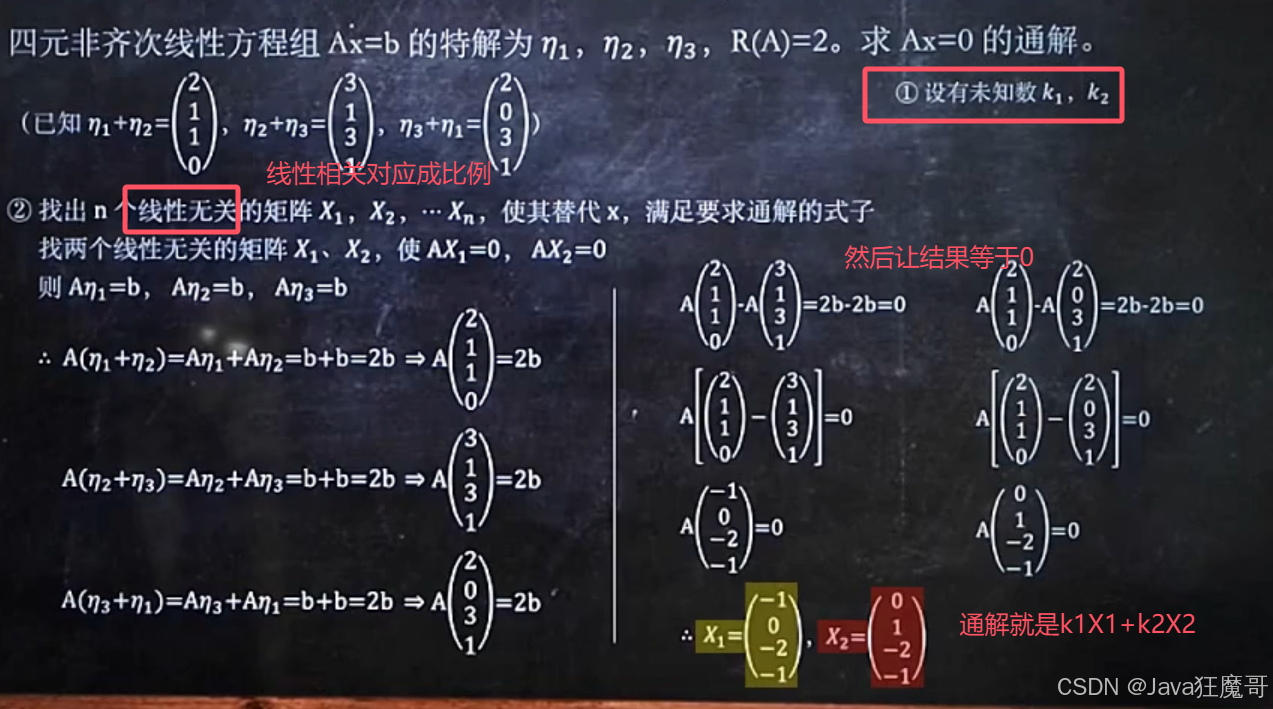 四元非齐次线性方程组 Ax=b 的特解为 η₁，η₂，η₃，R(A)=2。求 Ax=0 的通解。
① 设有未知数 k₁，k₂
（已知 η₁+η₂=(2 1 1 0)，η₂+η₃=(3 1 3 1)，η₃+η₁=(2 0 3 1)）
线性相关对应成比例
② 找出 n 个线性无关的矩阵 X₁，X₂，⋯Xₙ，使其替代 x，满足要求通解的式子
找两个线性无关的矩阵 X₁、X₂，使 AX₁=0，AX₂=0
然后让结果等于0
则 Aη₁=b，Aη₂=b，Aη₃=b
∴ A(η₁+η₂)=Aη₁+Aη₂=b+b=2b ⇒ A(2 1 1 0)=2b
A(η₂+η₃)=Aη₂+Aη₃=b+b=2b ⇒ A(3 1 3 1)=2b
A(η₃+η₁)=Aη₃+Aη₁=b+b=2b ⇒ A(2 0 3 1)=2b
A(2 1 1 0)-A(3 1 3 1)=2b-2b=0
A[(2 1 1 0)−(3 1 3 1)]=0
A(−1 0 −2 −1)=0
A(2 1 1 0)-A(2 0 3 1)=2b-2b=0
A[(2 1 1 0)−(2 0 3 1)]=0
A(0 1 −2 −1)=0
∴ X₁=(−1 0 −2 −1)，X₂=(0 1 −2 −1)
通解就是k1X1+k2X2
CSDN @Java狂魔哥